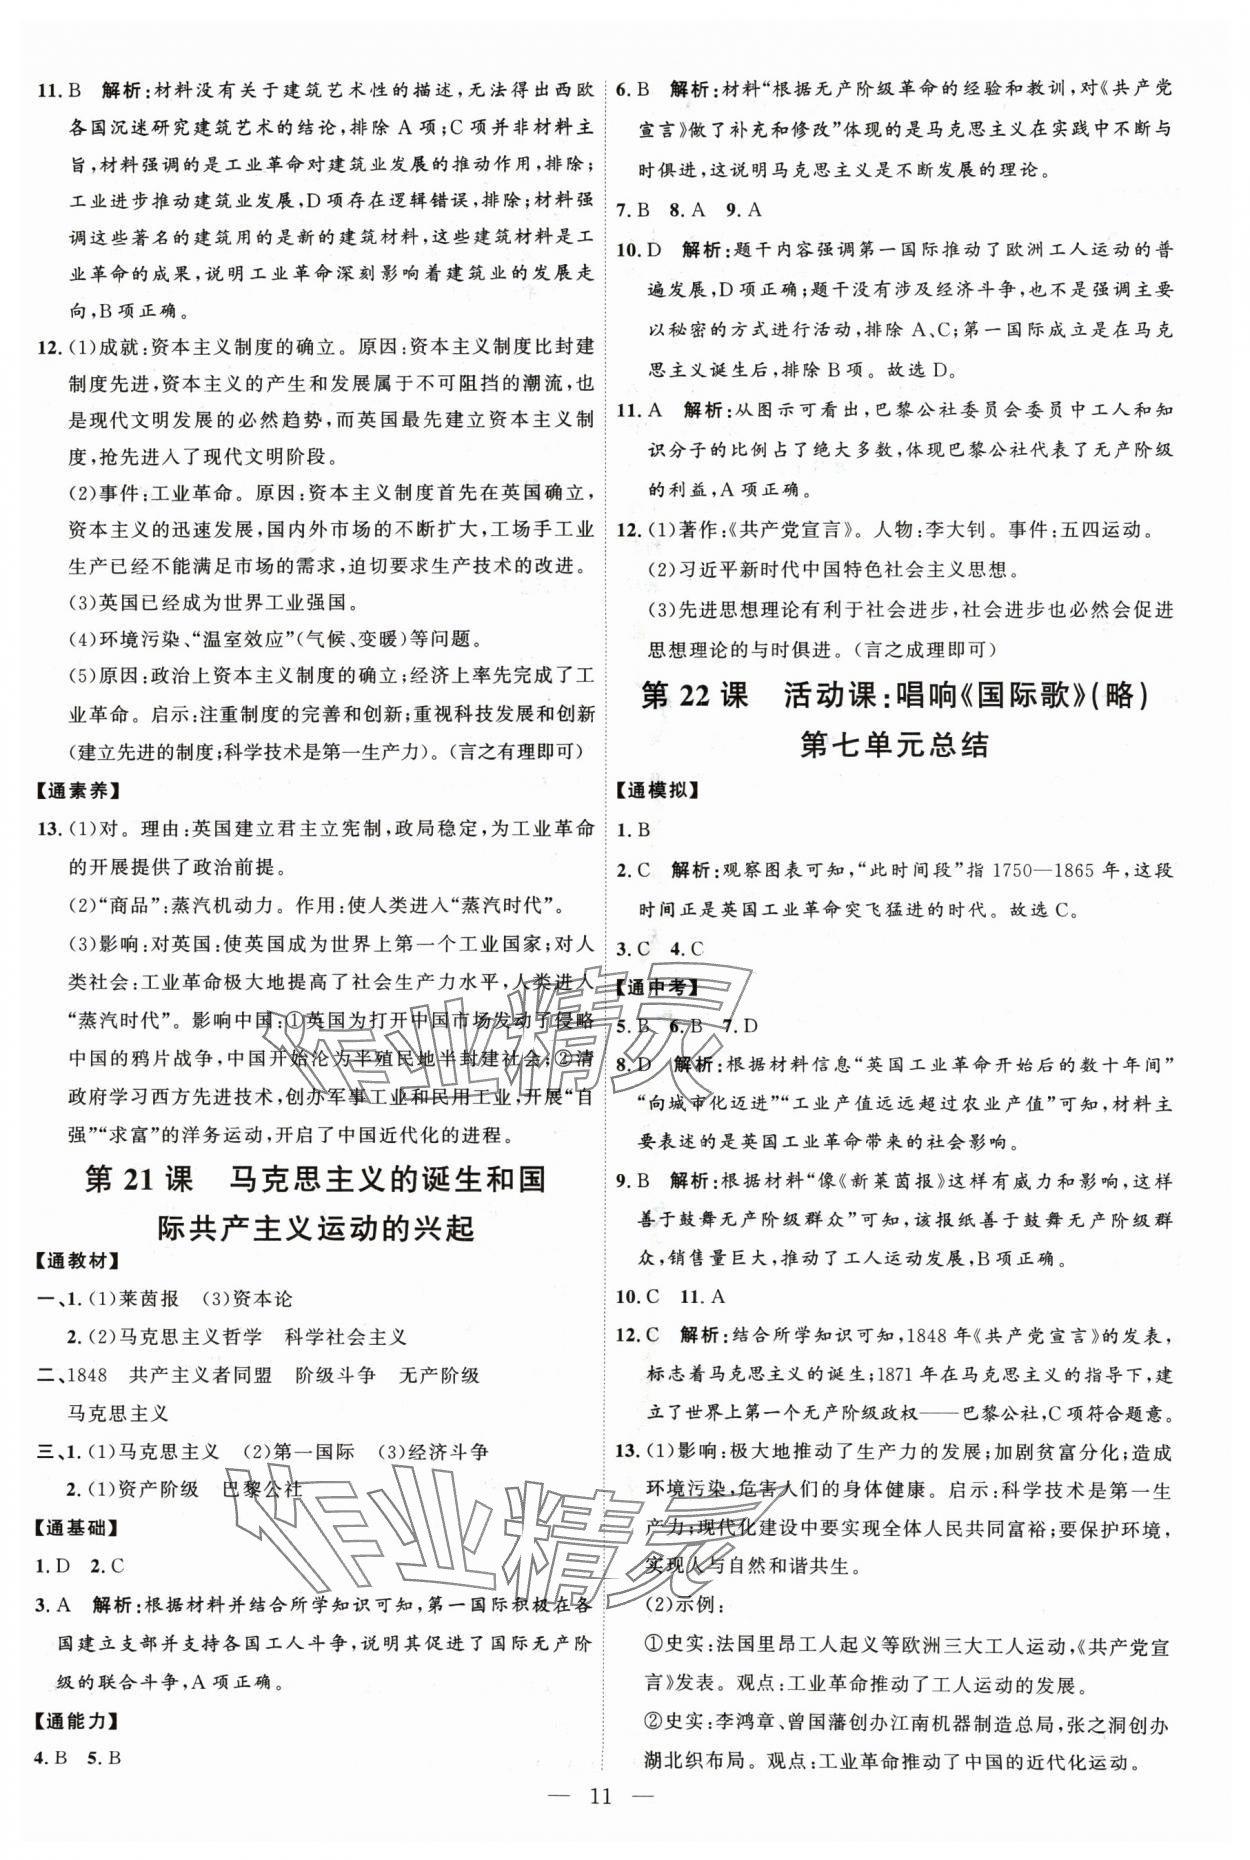 11. B　解析:材料没有关于建筑艺术性的描述,无法得出西欧
各国沉迷研究建筑艺术的结论,排除 A 项;C 项并非材料主
旨,材料强调的是工业革命对建筑业发展的推动作用,排除;
工业进步推动建筑业发展,D 项存在逻辑错误,排除;材料强
调这些著名的建筑用的是新的建筑材料,这些建筑材料是工
业革命的成果,说明工业革命深刻影响着建筑业的发展走
向,B 项正确。
12. (1)成就:资本主义制度的确立。原因:资本主义制度比封建
制度先进,资本主义的产生和发展属于不可阻挡的潮流,也
是现代文明发展的必然趋势,而英国最先建立资本主义制
度,抢先进入了现代文明阶段。
(2)事件:工业革命。原因:资本主义制度首先在英国确立,
资本主义的迅速发展,国内外市场的不断扩大,工场手工业
生产已经不能满足市场的需求,迫切要求生产技术的改进。
(3)英国已经成为世界工业强国。
(4)环境污染、“温室效应”(气候、变暖)等问题。
(5)原因:政治上资本主义制度的确立;经济上率先完成了工
业革命。启示:注重制度的完善和创新;重视科技发展和创新
(建立先进的制度;科学技术是第一生产力)。(言之有理即可)
【通素养】
13. (1)对。理由:英国建立君主立宪制,政局稳定,为工业革命
的开展提供了政治前提。
(2)“商品”:蒸汽机动力。作用:使人类进入“蒸汽时代”。
(3)影响:对英国:使英国成为世界上第一个工业国家;对人
类社会:工业革命极大地提高了社会生产力水平,人类进入
“蒸汽时代”。影响中国:①英国为打开中国市场发动了侵略
中国的鸦片战争,中国开始沦为半殖民地半封建社会;②清
政府学习西方先进技术,创办军事工业和民用工业,开展“自
强”“求富”的洋务运动,开启了中国近代化的进程。
第 21 课　马克思主义的诞生和国
际共产主义运动的兴起
【通教材】
一、1. (1)莱茵报　(3)资本论
2. (2)马克思主义哲学　科学社会主义
二、1848　共产主义者同盟　阶级斗争　无产阶级
马克思主义
三、1. (1)马克思主义　(2)第一国际　(3)经济斗争
2. (1)资产阶级　巴黎公社
【通基础】
1. D　2. C
3. A　解析:根据材料并结合所学知识可知,第一国际积极在各
国建立支部并支持各国工人斗争,说明其促进了国际无产阶
级的联合斗争,A 项正确。
【通能力】
4. B　5. B
6. B　解析:材料“根据无产阶级革命的经验和教训,对《共产党
宣言》做了补充和修改”体现的是马克思主义在实践中不断与
时俱进,这说明马克思主义是不断发展的理论。
7. B　8. A　9. A
10. D　解析:题干内容强调第一国际推动了欧洲工人运动的普
遍发展,D 项正确;题干没有涉及经济斗争,也不是强调主要
以秘密的方式进行活动,排除 A、C;第一国际成立是在马克
思主义诞生后,排除 B 项。故选 D。
11. A　解析:从图示可看出,巴黎公社委员会委员中工人和知
识分子的比例占了绝大多数,体现巴黎公社代表了无产阶级
的利益,A 项正确。
12. (1)著作:《共产党宣言》。人物:李大钊。事件:五四运动。
(2)习近平新时代中国特色社会主义思想。
(3)先进思想理论有利于社会进步,社会进步也必然会促进
思想理论的与时俱进。(言之成理即可)
第 22 课　活动课:唱响《国际歌》(略)
第七单元总结
【通模拟】
1. B
2. C　解析:观察图表可知,“此时间段”指 1750—1865 年,这段
时间正是英国工业革命突飞猛进的时代。故选 C。
3. C　4. C
【通中考】
5. B　6. B　7. D
8. D　解析:根据材料信息“英国工业革命开始后的数十年间”
“向城市化迈进”“工业产值远远超过农业产值”可知,材料主
要表述的是英国工业革命带来的社会影响。
9. B　解析:根据材料“像《新莱茵报》这样有威力和影响,这样
善于鼓舞无产阶级群众”可知,该报纸善于鼓舞无产阶级群
众,销售量巨大,推动了工人运动发展,B 项正确。
10. C　11. A
12. C　解析:结合所学知识可知,1848 年《共产党宣言》的发表,
标志着马克思主义的诞生;1871 年在马克思主义的指导下,建
立了世界上第一个无产阶级政权——巴黎公社,C 项符合题意。
13. (1)影响:极大地推动了生产力的发展;加剧贫富分化;造成
环境污染,危害人们的身体健康。启示:科学技术是第一生
产力;现代化建设中要实现全体人民共同富裕;要保护环境,
实现人与自然和谐共生。
(2)示例:
①史实:法国里昂工人起义等欧洲三大工人运动,《共产党宣
言》发表。观点:工业革命推动了工人运动的发展。
②史实:李鸿章、曾国藩创办江南机器制造总局,张之洞创办
湖北织布局。观点:工业革命推动了中国的近代化运动。
— 11 —
作业精灵
作业精灵